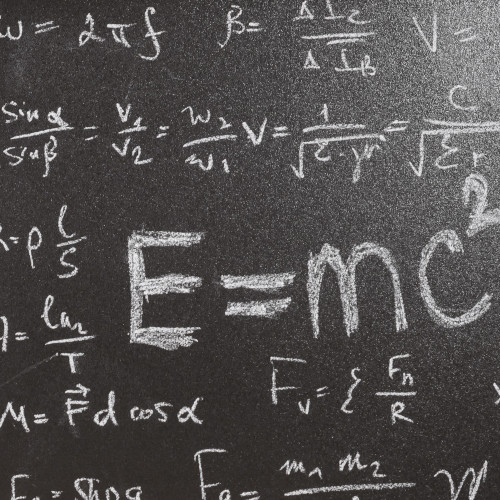 ω = 2πf β = Δ I₂ / Δ I_B V =
sin α / sin β = v₁ / v₂ = n₂ / n₁ V = 1 / √(ε · μ) = C / √(ε_r
R = ρ l / S
E = mc²
λ = ln₂ / T
F_v = { F_n / R
M = F⃗ d cos α
m₁ m₂